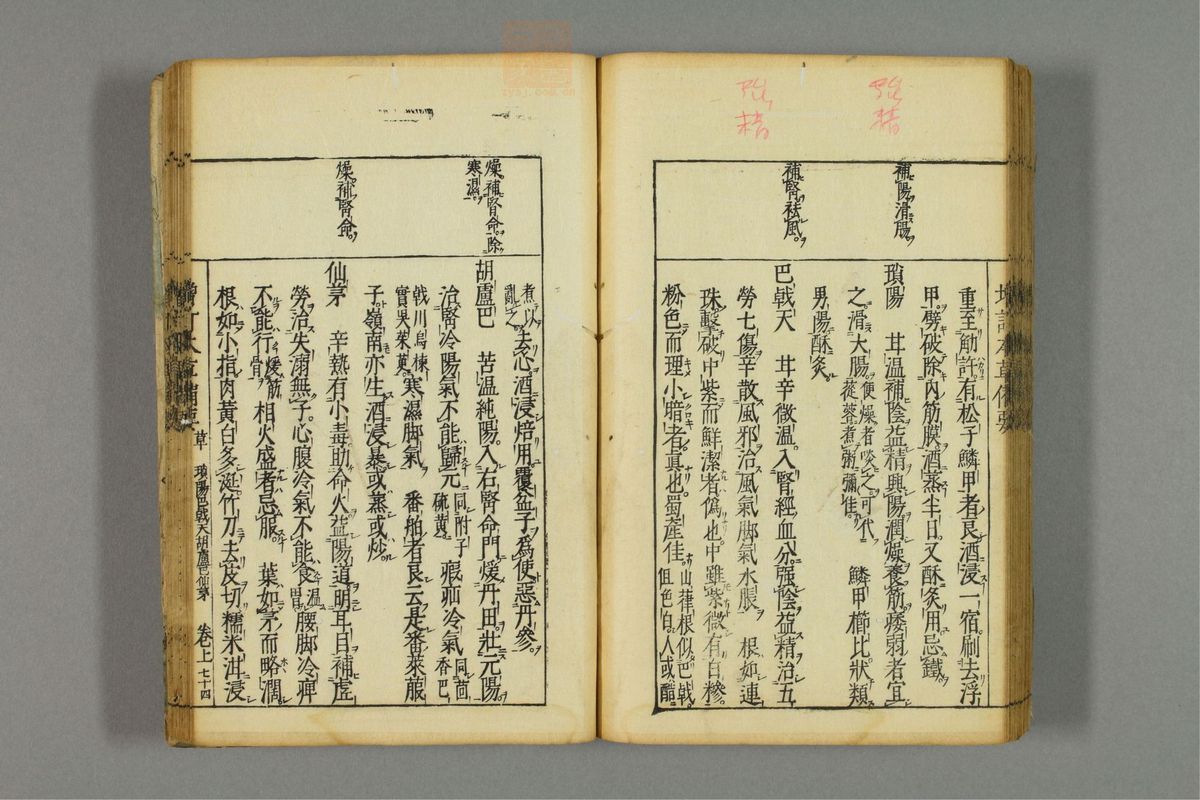 補陽滑腸
補腎祛風
重至觔許有松子鱗甲者良酒浸一宿刷去浮
甲劈破除內筋膜酒蒸半日又酥炙用忌鐵
瑣陽 甘温補陰益精興陽潤燥養筋痿弱者宜
之滑大腸便燥者啖之可代蓯蓉煮粥彌佳 鱗甲櫛比狀類
男陽酥炙
巴戟天 甘辛微温入腎經血分强陰益精治五
勞七傷辛散風邪治風氣脚氣水脹 根如連
珠擊破中紫而鮮潔者偽也中雖紫微有白糝
粉色而理小暗者真也蜀產佳山葎根似巴戟但色白人或醋
燥補腎命除
寒濕
燥補腎命
煮以亂之去心酒浸焙用覆盆子為使惡丹參
胡盧巴 苦温純陽入右腎命門煖丹田壯元陽
治腎冷陽氣不能歸元同附子硫黄瘕疝冷氣同茴香巴
戟川烏楝實吳茱萸寒濕脚氣 番舶者良云是番萊菔
子嶺南亦生酒浸暴或蒸或炒
仙茅 辛熱有小毒助命火益陽道明耳目補虛
勞治失溺無子心腹冷氣不能食温胃腰脚冷痺
不能行煖筋骨相火盛者忌服 葉如茅而略濶
根如小指肉黄白多涎竹刀去皮切糯米泔浸
草
瑣陽巴戟天胡盧巴仙茅
卷上七十四